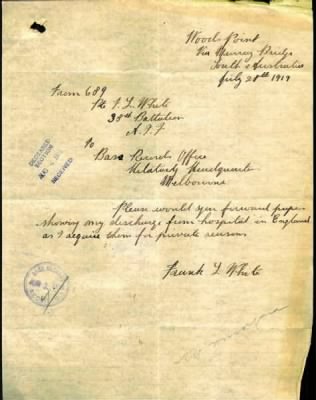 Woods Point
Via Murray Bridge
South Australia
July 28th 1919
From 689
Pte F. L. White
38th Battalion
A.I.F
To
Base Records Office
Military Headquarters
Melbourne
Please would you forward papers
showing my discharge from hospital in England
as I require them for private reasons
Frank L White
RECEIVED